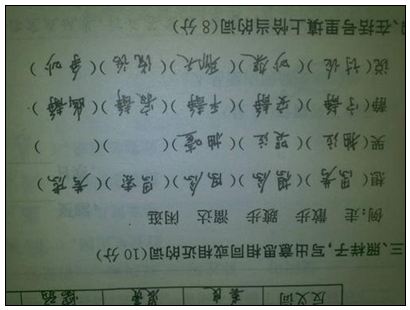 反义词
三、照样子,写出意思相同或相近的词(10分)
例:走 散步 踱步 溜达 闲逛
想(思考)(想念)(思念)(思索)(考虑)
哭(抽泣)(哭泣)(抽噎)( )( )
静(宁静)(安静)(平静)(寂静)(幽静)
说(讨论)(吵架)(聊天)( )(争吵)
、在括号里填上恰当的词(8分)